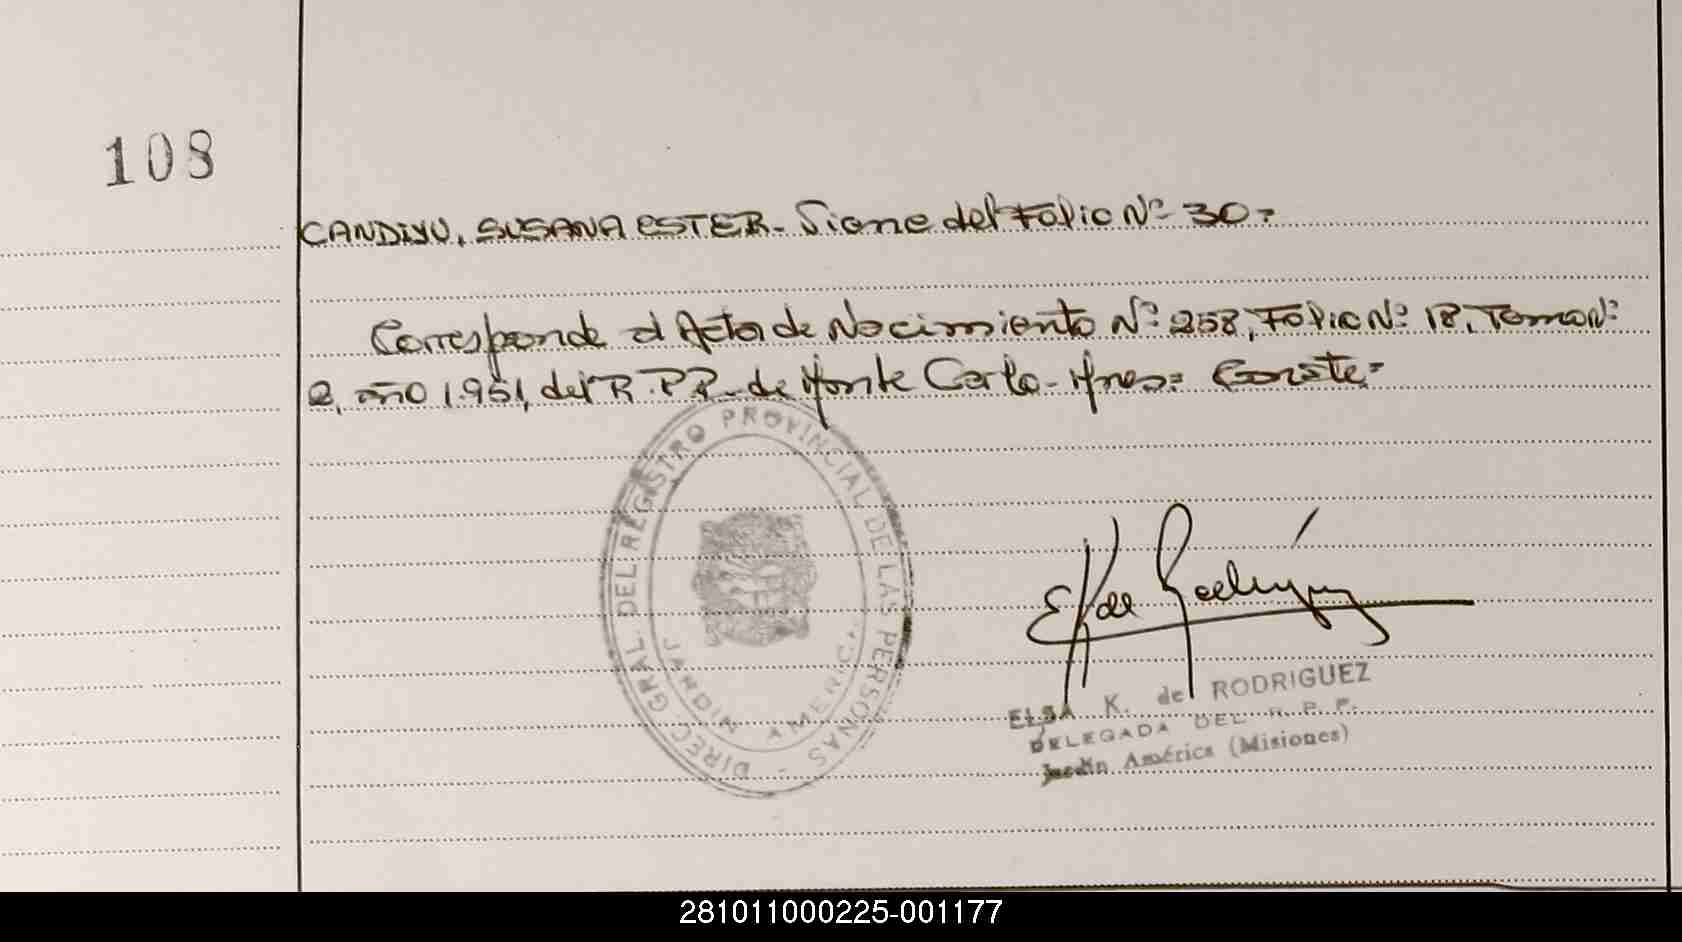 108
CANDIYU, SUSANA ESTER.- Viene del Folio Nº 30=
Corresponde al Acta de Nacimiento Nº 258, Folio Nº 18, Tomo Nº
2, año 1.951, del R.P.P.- de Monte Carlo- Mnes= Conste=
DIREC. GRAL DEL REGISTRO PROVINCIAL DE LAS PERSONAS -
JARDIN AMERICA
E K de Rodríguez
ELSA K. de RODRIGUEZ
DELEGADA DEL R. P. P.
Jardín América (Misiones)
281011000225-001177